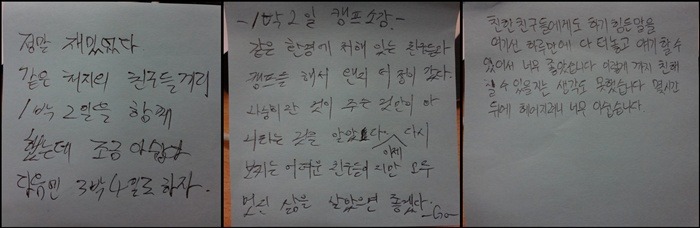 정말 재밌었다
같은 처지의 친구들끼리
1박 2일을 함께
했는데 조금 아쉽다
다음번 3박4일로 하자.
-1박 2일 캠프소감.-
같은 환경에 처해 있는 친구들과
캠프를 해서 왠지 더 좋았다.
나눔이란 것이 주는 것만이 아
니라는 것을 알았다 다시
이제
보기는 어려운 친구들이지만 모두
멋진 삶을 살았으면 좋겠다.
친한친구들에게도 하기 힘든 말을
여기선 하루만에 다 터놓고 얘기 할 수
있어서 너무 좋았습니다 이렇게 까지 친해
질 수 있을지는 생각도 못했습니다 몇시간
뒤에 헤어지려니 너무 아쉽습니다.